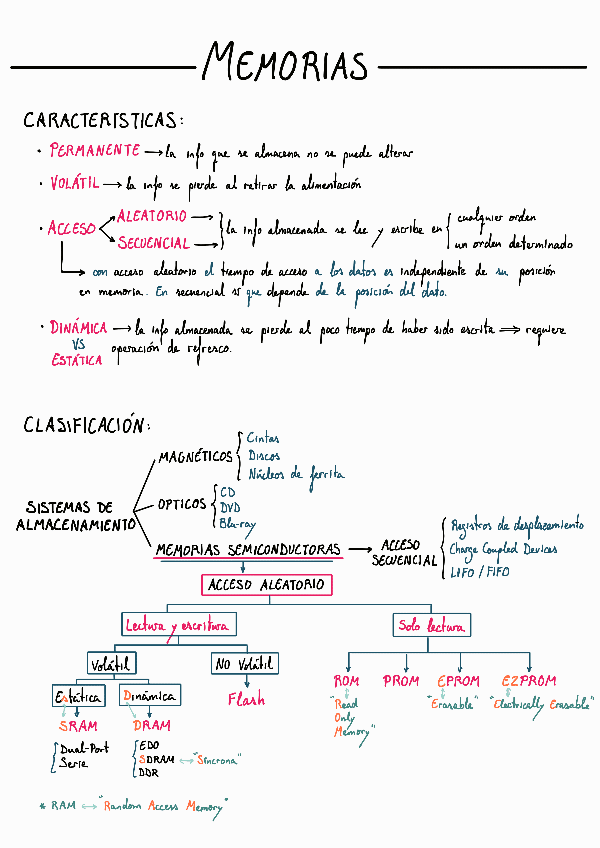 MEMORIAS
CARACTERÍSTICAS:
· PERMANENTE → la info que se almacena no se puede alterar
· VOLÁTIL → la info se pierde al retirar la alimentación
· ACCESO
ALEATORIO →
SECUENCIAL →
la info almacenada se lee y escribe en
cualquier orden
un orden determinado
con acceso aleatorio el tiempo de acceso a los datos es independiente de su posición
en memoria. En secuencial sí que depende de la posición del dato.
· DINÁMICA → la info almacenada se pierde al poco tiempo de haber sido escrita ⇒ requiere
VS operación de refresco.
ESTÁTICA
CLASIFICACIÓN:
SISTEMAS DE
ALMACENAMIENTO
MAGNÉTICOS
Cintas
Discos
Núcleos de ferrita
OPTICOS
CD
DVD
Blu-ray
MEMORIAS SEMICONDUCTORAS → ACCESO
SECUENCIAL
Registros de desplazamiento
Charge Coupled Devices
LIFO / FIFO
ACCESO ALEATORIO
Lectura y escritura
Solo lectura
Volátil
NO Volátil
Estática
Dinámica
Flash
SRAM
DRAM
Dual-Port
Serie
EDO
SDRAM ↔ "Síncrona"
DDR
ROM PROM EPROM E2PROM
"Read
Only
Memory"
"Erasable"
"Electrically Erasable"
* RAM ↔ "Random Access Memory"